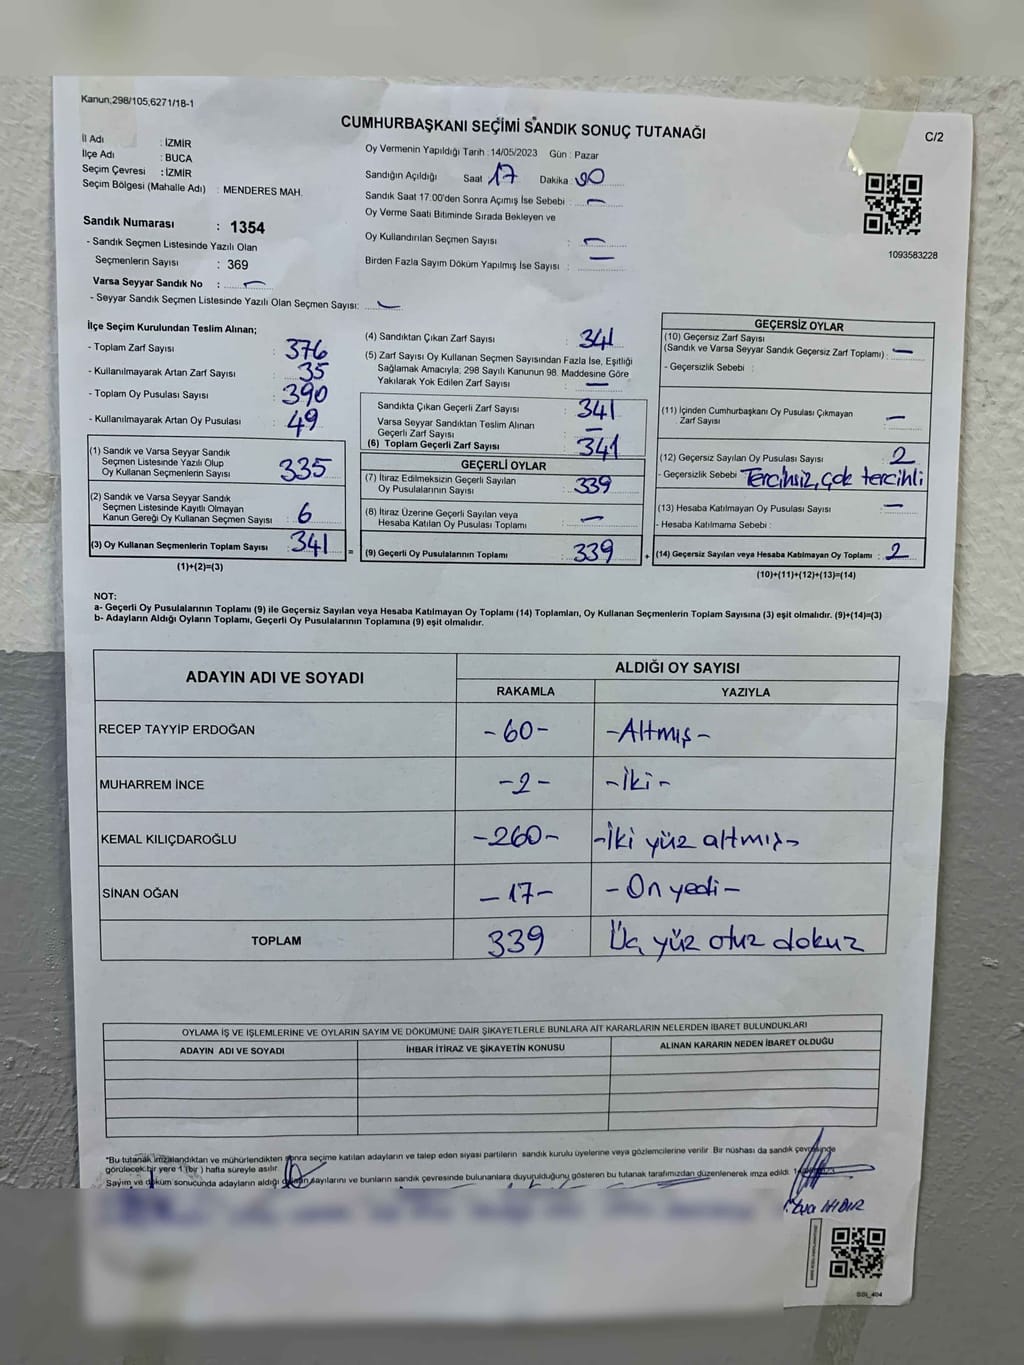 Kanun;298/105,6271/18-1
CUMHURBAŞKANI SEÇİMİ SANDIK SONUÇ TUTANAĞI
C/2
İl Adı : İZMİR
İlçe Adı : BUCA
Seçim Çevresi : İZMİR
Seçim Bölgesi (Mahalle Adı) : MENDERES MAH.
Sandık Numarası : 1354
- Sandık Seçmen Listesinde Yazılı Olan
Seçmenlerin Sayısı : 369
Varsa Seyyar Sandık No : —
- Seyyar Sandık Seçmen Listesinde Yazılı Olan Seçmen Sayısı: —
Oy Vermenin Yapıldığı Tarih : 14/05/2023 Gün : Pazar
Sandığın Açıldığı Saat 17 Dakika :
Sandık Saat 17:00'den Sonra Açımış İse Sebebi : —
Oy Verme Saati Bitiminde Sırada Bekleyen ve
Oy Kullandırılan Seçmen Sayısı : —
Birden Fazla Sayım Döküm Yapılmış İse Sayısı : —
1093583228
İlçe Seçim Kurulundan Teslim Alınan;
- Toplam Zarf Sayısı : 376
- Kullanılmayarak Artan Zarf Sayısı : 35
- Toplam Oy Pusulası Sayısı : 390
- Kullanılmayarak Artan Oy Pusulası : 49
(1) Sandık ve Varsa Seyyar Sandık
Seçmen Listesinde Yazılı Olup
Oy Kullanan Seçmenlerin Sayısı : 335
(2) Sandık ve Varsa Seyyar Sandık
Seçmen Listesinde Kayıtlı Olmayan
Kanun Gereği Oy Kullanan Seçmen Sayısı : 6
(3) Oy Kullanan Seçmenlerin Toplam Sayısı : 341
(1)+(2)=(3)
(4) Sandıktan Çıkan Zarf Sayısı : 341
(5) Zarf Sayısı Oy Kullanan Seçmen Sayısından Fazla İse, Eşitliği
Sağlamak Amacıyla; 298 Sayılı Kanunun 98. Maddesine Göre
Yakılarak Yok Edilen Zarf Sayısı : —
Sandıkta Çıkan Geçerli Zarf Sayısı : 341
Varsa Seyyar Sandıktan Teslim Alınan
Geçerli Zarf Sayısı : —
(6) Toplam Geçerli Zarf Sayısı : 341
GEÇERLİ OYLAR
(7) İtiraz Edilmeksizin Geçerli Sayılan
Oy Pusulalarının Sayısı : 339
(8) İtiraz Üzerine Geçerli Sayılan veya
Hesaba Katılan Oy Pusulası Toplamı : —
= (9) Geçerli Oy Pusulalarının Toplamı : 339
GEÇERSİZ OYLAR
(10) Geçersiz Zarf Sayısı
(Sandık ve Varsa Seyyar Sandık Geçersiz Zarf Toplamı) : —
- Geçersizlik Sebebi :
(11) İçinden Cumhurbaşkanı Oy Pusulası Çıkmayan
Zarf Sayısı : —
(12) Geçersiz Sayılan Oy Pusulası Sayısı : 2
- Geçersizlik Sebebi : Tercihsiz, çok tercihli
(13) Hesaba Katılmayan Oy Pusulası Sayısı : —
- Hesaba Katılmama Sebebi :
+ (14) Geçersiz Sayılan veya Hesaba Katılmayan Oy Toplamı : 2
(10)+(11)+(12)+(13)=(14)
NOT:
a- Geçerli Oy Pusulalarının Toplamı (9) ile Geçersiz Sayılan veya Hesaba Katılmayan Oy Toplamı (14) Toplamları, Oy Kullanan Seçmenlerin Toplam Sayısına (3) eşit olmalıdır. (9)+(14)=(3)
b- Adayların Aldığı Oyların Toplamı, Geçerli Oy Pusulalarının Toplamına (9) eşit olmalıdır.
ADAYIN ADI VE SOYADI
ALDIĞI OY SAYISI
RAKAMLA YAZIYLA
RECEP TAYYİP ERDOĞAN -60- -Altmış-
MUHARREM İNCE -2- -İki-
KEMAL KILIÇDAROĞLU -260- -İki yüz altmış-
SİNAN OĞAN -17- -On yedi-
TOPLAM 339 Üç yüz otuz dokuz
OYLAMA İŞ VE İŞLEMLERİNE VE OYLARIN SAYIM VE DÖKÜMÜNE DAİR ŞİKAYETLERLE BUNLARA AİT KARARLARIN NELERDEN İBARET BULUNDUKLARI
ADAYIN ADI VE SOYADI İHBAR İTİRAZ VE ŞİKAYETİN KONUSU ALINAN KARARIN NEDEN İBARET OLDUĞU
*Bu tutanak imzalandıktan ve mühürlendikten sonra seçime katılan adayların ve talep eden siyasi partilerin sandık kurulu üyelerine veya gözlemcilerine verilir. Bir nüshası da sandık çevresinde
görülecek bir yere 1 (bir) hafta süreyle asılır.
Sayım ve döküm sonucunda adayların aldığı oyların sayılarını ve bunların sandık çevresinde bulunanlara duyurulduğunu gösteren bu tutanak tarafımızdan düzenlenerek imza edildi.
SSİ_404